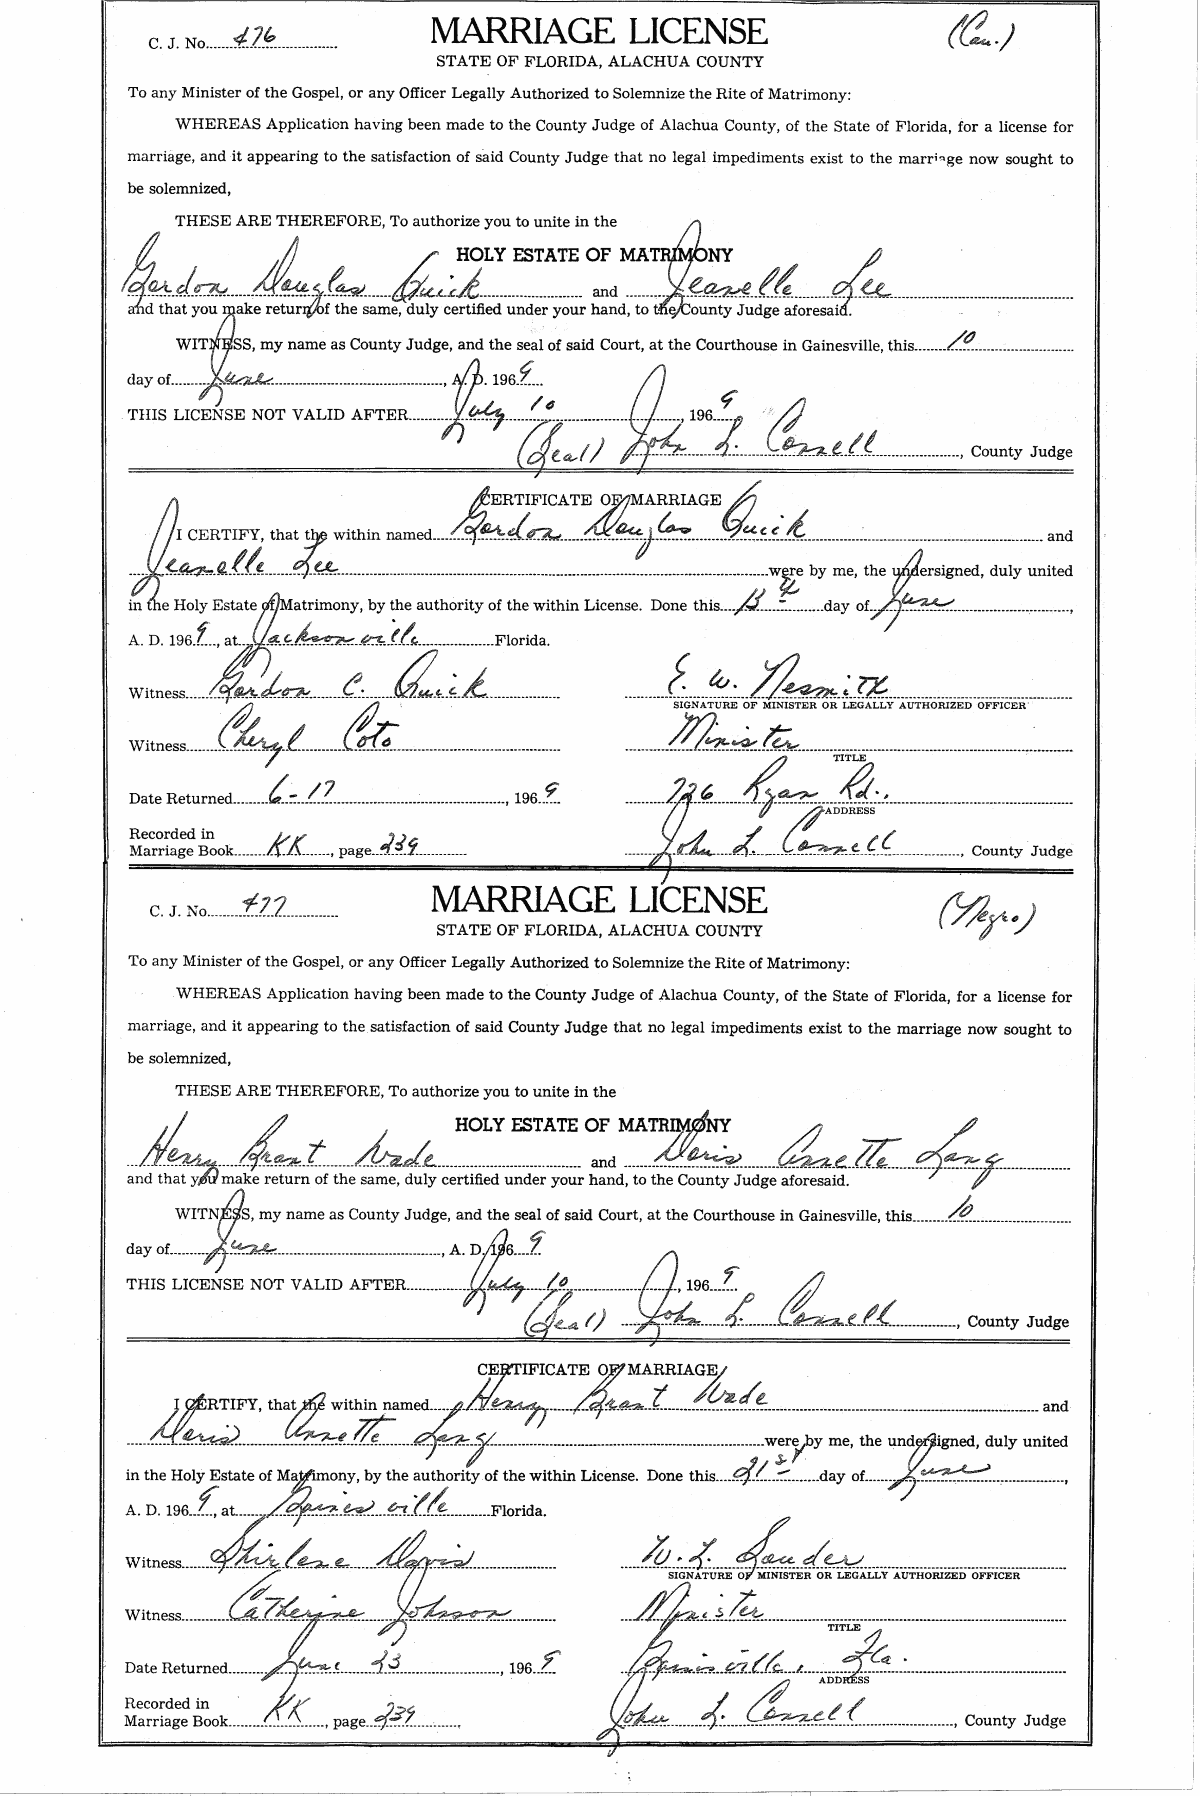 C. J. No. 476 MARRIAGE LICENSE (Cau.)
STATE OF FLORIDA, ALACHUA COUNTY
To any Minister of the Gospel, or any Officer Legally Authorized to Solemnize the Rite of Matrimony:
WHEREAS Application having been made to the County Judge of Alachua County, of the State of Florida, for a license for
marriage, and it appearing to the satisfaction of said County Judge that no legal impediments exist to the marriage now sought to
be solemnized,
THESE ARE THEREFORE, To authorize you to unite in the
HOLY ESTATE OF MATRIMONY
Gordon Douglas Quick and Jeanelle Lee
and that you make return of the same, duly certified under your hand, to the County Judge aforesaid.
WITNESS, my name as County Judge, and the seal of said Court, at the Courthouse in Gainesville, this 10
day of June, A. D. 1969.
THIS LICENSE NOT VALID AFTER July 10, 1969
(Seal) John L. Connell, County Judge
CERTIFICATE OF MARRIAGE
I CERTIFY, that the within named Gordon Douglas Quick and
Jeanelle Lee were by me, the undersigned, duly united
in the Holy Estate of Matrimony, by the authority of the within License. Done this 13th day of June,
A. D. 1969, at Jacksonville Florida.
Witness Gordon C. Quick E. W. Nesmith
SIGNATURE OF MINISTER OR LEGALLY AUTHORIZED OFFICER
Witness Cheryl Coto Minister
TITLE
Date Returned 6-17, 1969 726 Ryan Rd.,
ADDRESS
Recorded in
Marriage Book KK, page 239 John L. Connell, County Judge
C. J. No. 477 MARRIAGE LICENSE (Negro)
STATE OF FLORIDA, ALACHUA COUNTY
To any Minister of the Gospel, or any Officer Legally Authorized to Solemnize the Rite of Matrimony:
WHEREAS Application having been made to the County Judge of Alachua County, of the State of Florida, for a license for
marriage, and it appearing to the satisfaction of said County Judge that no legal impediments exist to the marriage now sought to
be solemnized,
THESE ARE THEREFORE, To authorize you to unite in the
HOLY ESTATE OF MATRIMONY
Henry Grant Wade and Doris Annette Lang
and that you make return of the same, duly certified under your hand, to the County Judge aforesaid.
WITNESS, my name as County Judge, and the seal of said Court, at the Courthouse in Gainesville, this 10
day of June, A. D. 1969.
THIS LICENSE NOT VALID AFTER July 10, 1969.
(Seal) John L. Connell, County Judge
CERTIFICATE OF MARRIAGE
I CERTIFY, that the within named Henry Grant Wade and
Doris Annette Lang were by me, the undersigned, duly united
in the Holy Estate of Matrimony, by the authority of the within License. Done this 21st day of June,
A. D. 1969, at Gainesville Florida.
Witness Shirlene Davis W. L. Souder
SIGNATURE OF MINISTER OR LEGALLY AUTHORIZED OFFICER
Witness Catherine Johnson Minister
TITLE
Date Returned June 23, 1969 Gainesville, Fla.
ADDRESS
Recorded in
Marriage Book KK, page 239 John L. Connell, County Judge